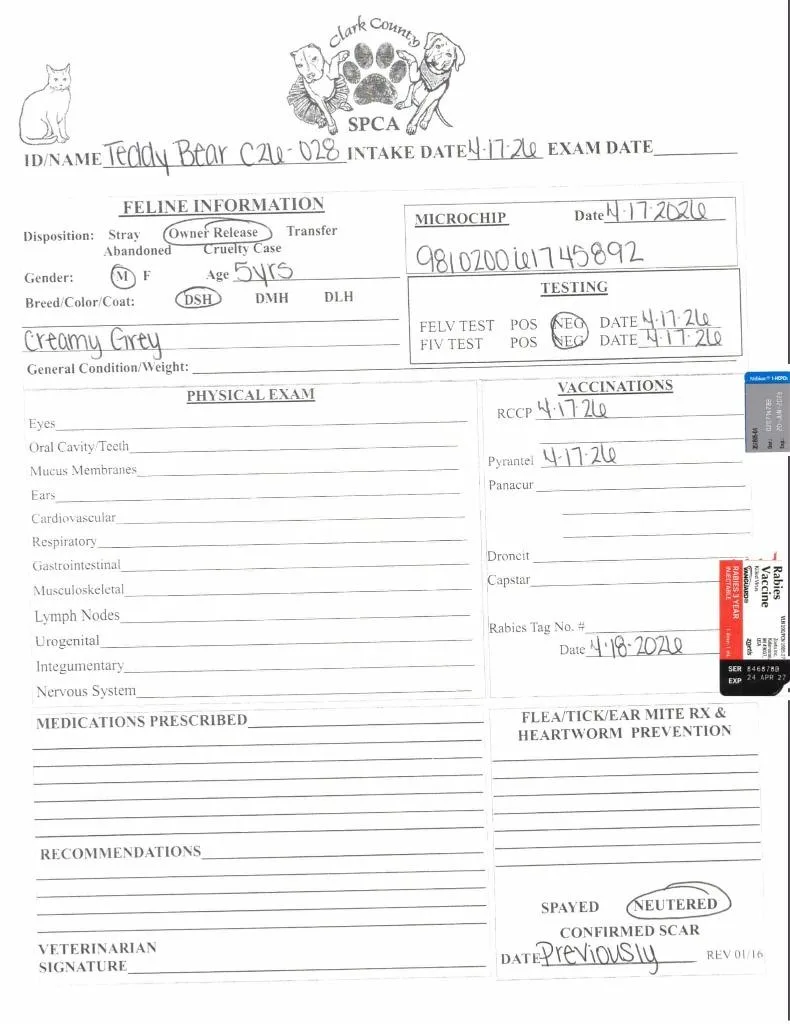 Clark County
SPCA
ID/NAME Teddy Bear C26-028 INTAKE DATE 4-17-26 EXAM DATE
FELINE INFORMATION
Disposition: Stray Owner Release Transfer
Abandoned Cruelty Case
Gender: M F Age 5yrs
Breed/Color/Coat: DSH DMH DLH
Creamy Grey
General Condition/Weight:
MICROCHIP Date 4-17-2026
981020061745892
TESTING
FELV TEST POS NEG DATE 4-17-26
FIV TEST POS NEG DATE 4-17-26
PHYSICAL EXAM
Eyes
Oral Cavity/Teeth
Mucus Membranes
Ears
Cardiovascular
Respiratory
Gastrointestinal
Musculoskeletal
Lymph Nodes
Urogenital
Integumentary
Nervous System
VACCINATIONS
RCCP 4-17-26
Pyrantel 4-17-26
Panacur
Droncit
Capstar
Rabies Tag No. #
Date 4-18-2026
Nobivac® 1-HCPCh
Rabies
Vaccine
Killed Virus
VANGUARD®
RABIES 3 YEAR
INJECTABLE
zoetis
SER 846878B
EXP 24 APR 27
MEDICATIONS PRESCRIBED
RECOMMENDATIONS
VETERINARIAN
SIGNATURE
FLEA/TICK/EAR MITE RX &
HEARTWORM PREVENTION
SPAYED NEUTERED
CONFIRMED SCAR
DATE Previously REV 01/16